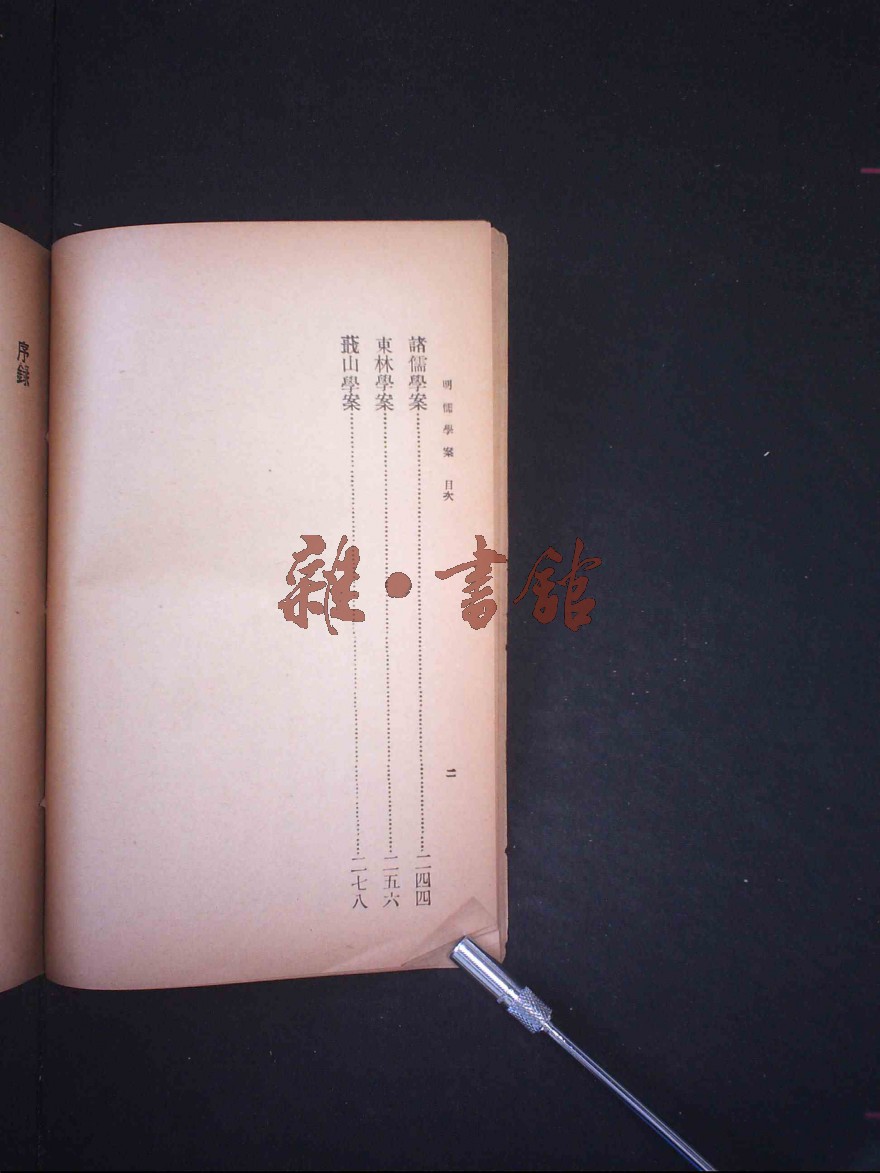 明儒學案 目次
二
諸儒學案……二四四
東林學案……二五六
蕺山學案……二七八
序錄
雜·書館